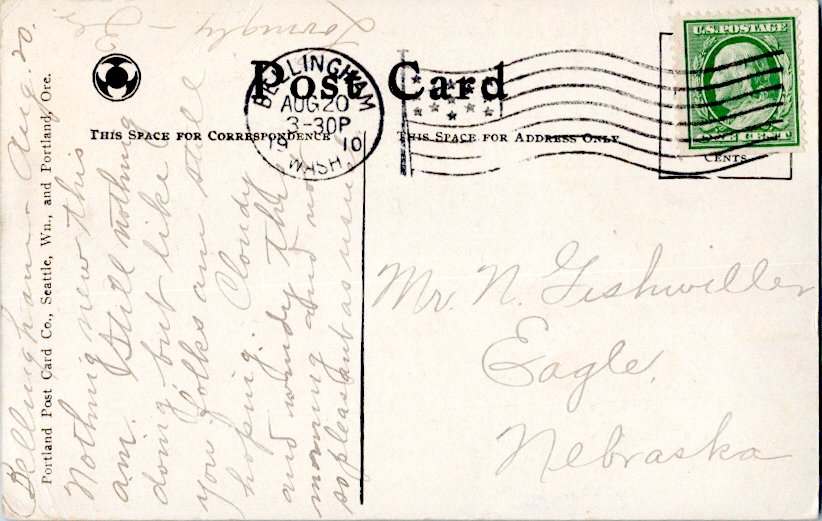 Post Card
THIS SPACE FOR CORRESPONDENCE
THIS SPACE FOR ADDRESS ONLY
BELLINGHAM
AUG 20
3-30P
1910
WASH.
U.S. POSTAGE
ONE CENT
CENTS
Portland Post Card Co., Seattle, Wn., and Portland, Ore.
Bellingham - Aug. 20.
Nothing new this
am. Still nothing
doing but like
you folks are still
hoping. Cloudy
and windy this
morning and not
so pleasant as usu
Lovingly -
Mr. N. Fishwiller
Eagle,
Nebraska